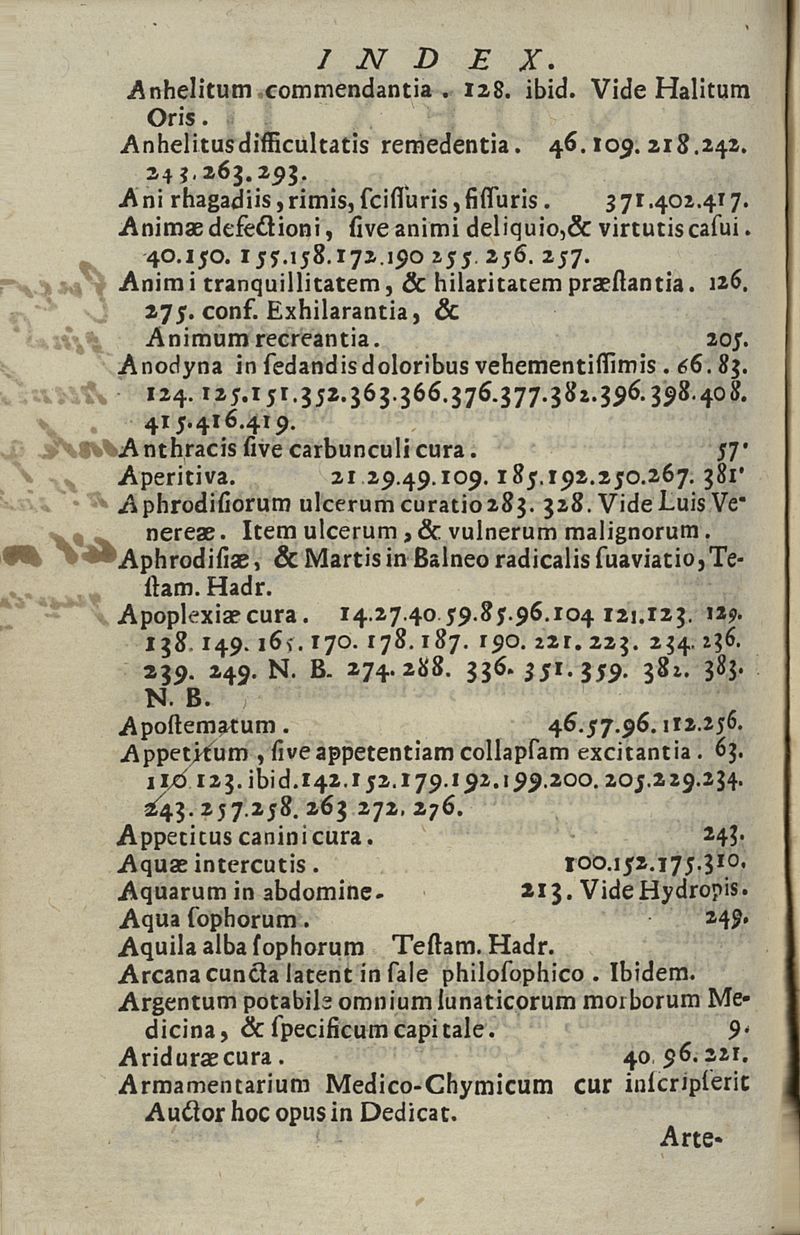 INDEX.
Anhelitum commendantia. 128. ibid. Vide Halitum
Oris.
Anhelitus difficultatis remedentia. 46. 109. 218. 242.
243. 263. 293.
Ani rhagadiis, rimis, ſciſſuris, fiſſuris. 371. 402. 417.
Animæ defectioni, ſive animi deliquio, & virtutis caſui.
40. 150. 155. 158. 172. 190 255. 256. 257.
Animi tranquillitatem, & hilaritatem præſtantia. 126.
275. conf. Exhilarantia, &
Animum recreantia. 205.
Anodyna in ſedandis doloribus vehementiſſimis. 66. 83.
124. 125. 151. 352. 363. 366. 376. 377. 382. 396. 398. 408.
415. 416. 419.
Anthracis ſive carbunculi cura. 57.
Aperitiva. 21 29. 49. 109. 185. 192. 250. 267. 381.
Aphrodiſiorum ulcerum curatio 283. 328. Vide Luis Ve-
nereæ. Item ulcerum, & vulnerum malignorum.
Aphrodiſiæ, & Martis in Balneo radicalis ſuaviatio, Te-
ſtam. Hadr.
Apoplexiæ cura. 14. 27. 40. 59. 85. 96. 104 121. 123. 129.
138. 149. 165. 170. 178. 187. 190. 221. 223. 234. 236.
239. 249. N. B. 274. 288. 336. 351. 359. 382. 383.
N. B.
Apoſtematum. 46. 57. 96. 112. 256.
Appetitum, ſive appetentiam collapſam excitantia. 63.
110 123. ibid. 142. 152. 179. 192. 199. 200. 205. 229. 234.
243. 257. 258. 263 272. 276.
Appetitus canini cura. 243.
Aquæ intercutis. 100. 152. 175. 310.
Aquarum in abdomine. 213. Vide Hydropis.
Aqua ſophorum. 249.
Aquila alba ſophorum Teſtam. Hadr.
Arcana cuncta latent in ſale philoſophico. Ibidem.
Argentum potabile omnium lunaticorum morborum Me-
dicina, & ſpecificum capitale. 9.
Ariduræ cura. 40. 96. 221.
Armamentarium Medico-Chymicum cur inſcripſerit
Auctor hoc opus in Dedicat.
Arte-